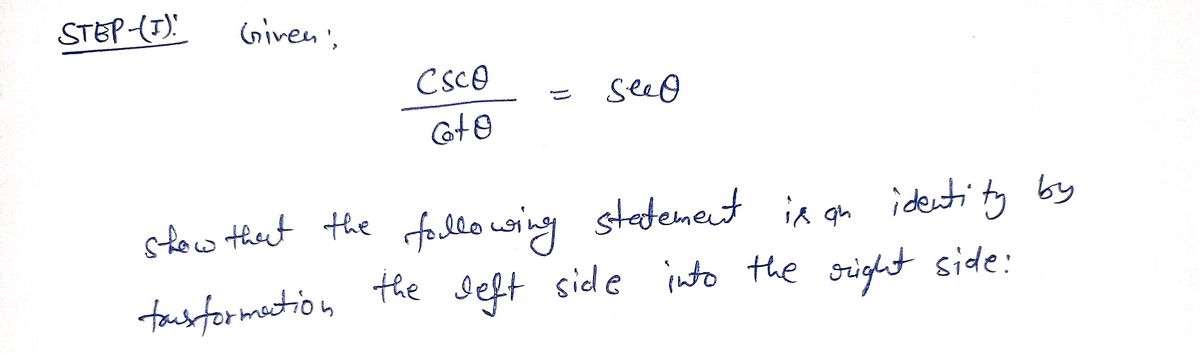 STEP-(I):  Given;
Cscθ = Secθ
Cotθ
show that the following statement is an identity by
trasformation the left side into the right side: